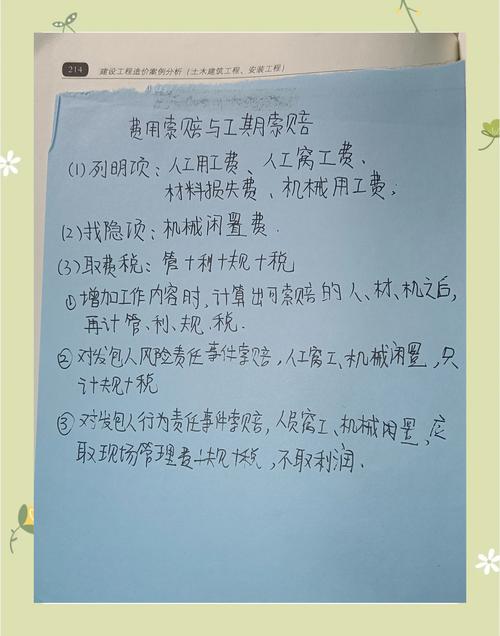 214 建设工程造价案例分析（土木建筑工程、安装工程）
费用索赔与工期索赔
(1)列明项：人工用工费、人工窝工费、
材料损失费、机械用工费；
(2)找隐项：机械闲置费.
(3)取费税：管+利+规+税
①增加工作内容时,计算出可索赔的人、材、机之后,
再计管、利、规、税.
②对发包人风险责任事件索赔,人工窝工、机械闲置,只
计规+税
③对发包人行为责任事件索赔,人员窝工、机械闲置,应
取现场管理费+规+税,不取利润.